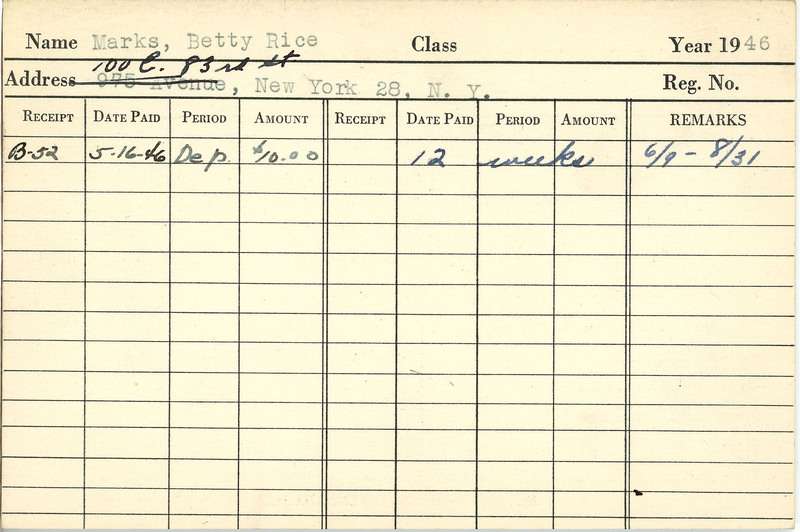 Name Marks, Betty Rice Class Year 1946
100 E. 83rd st
Address 975 Avenue, New York 28, N. Y. Reg. No.
RECEIPT DATE PAID PERIOD AMOUNT RECEIPT DATE PAID PERIOD AMOUNT REMARKS
B-52 5-16-46 Dep. $10.00 12 weeks 6/9 - 8/31